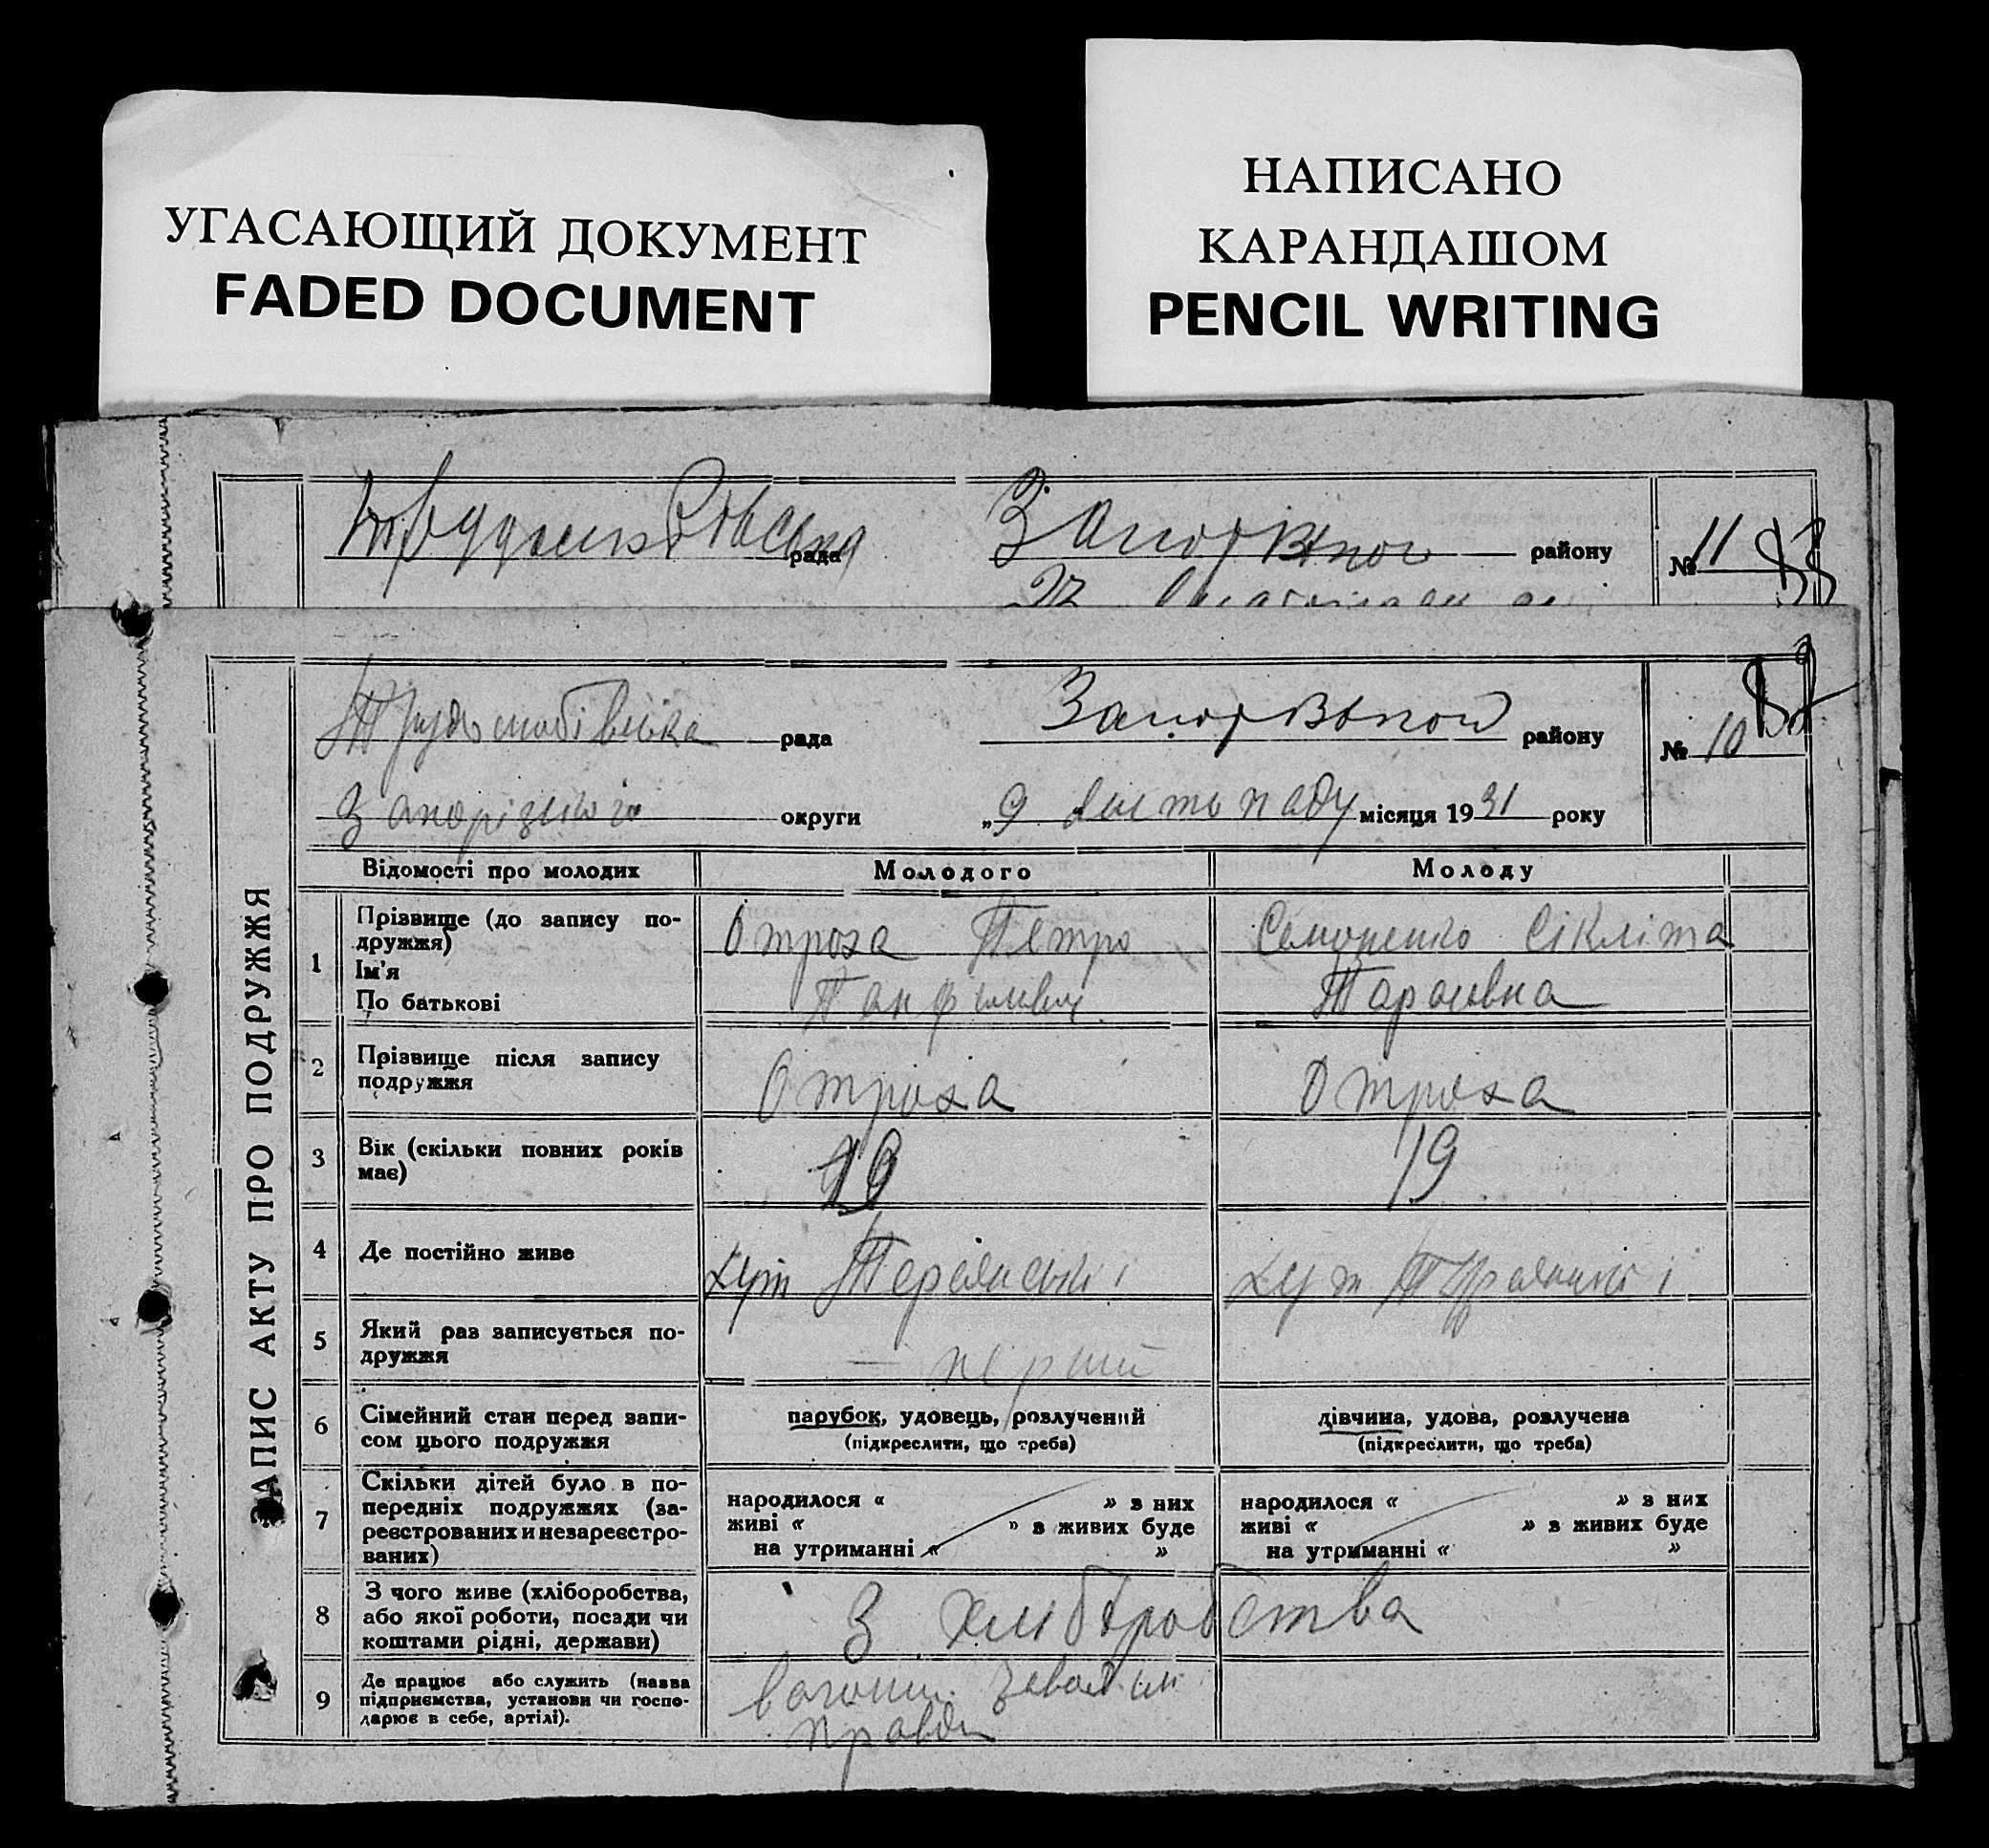 УГАСАЮЩИЙ ДОКУМЕНТ
FADED DOCUMENT
НАПИСАНО
КАРАНДАШОМ
PENCIL WRITING
рада району № 11
рада району № 10
округи „9 листопаду місяця 1931 року
ЗАПИС АКТУ ПРО ПОДРУЖЖЯ
Відомості про молодих Молодого Молоду
1 Прізвище (до запису по-
дружжя)
Ім'я
По батькові
Отроха Петро
Панфилович
Сікліта
Тарасовна
2 Прізвище після запису
подружжя
Отроха Отроха
3 Вік (скільки повних років
має)
19 19
4 Де постійно живе
хут хут
5 Який раз записується по-
дружжя
перший
6 Сімейний стан перед запи-
сом цього подружжя
парубок, удовець, розлучений
(підкреслити, що треба)
дівчина, удова, розлучена
(підкреслити, що треба)
7 Скільки дітей було в по-
передніх подружжях (за-
реєстрованих и незареєстро-
ваних)
народилося « » з них
живі « » з живих буде
на утриманні « »
народилося « » з них
живі « » з живих буде
на утриманні « »
8 З чого живе (хліборобства,
або якої роботи, посади чи
коштами рідні, держави)
З хліборобства
9 Де працює або служить (назва
підприємства, установи чи госпо-
дарює в себе, артілі).